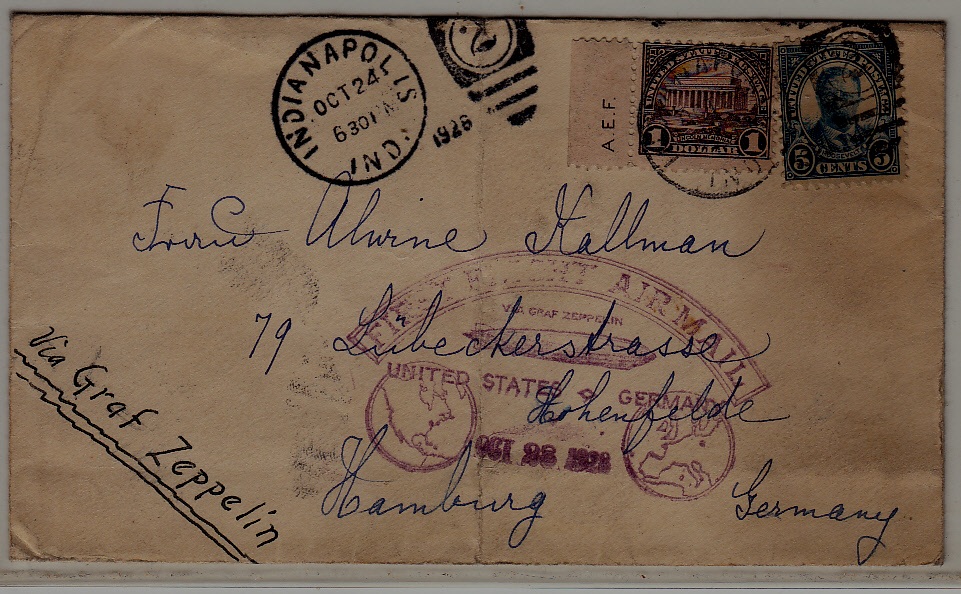 INDIANAPOLIS
OCT 24
6 30 PM
IND.
1928
2
A.E.F.
UNITED STATES POSTAGE
LINCOLN MEMORIAL
1 DOLLAR 1
UNITED STATES POSTAGE
ROOSEVELT
5 CENTS 5
Frau Alwine Kallman
79 Lübeckerstrasse
Hohenfelde
Hamburg Germany
Via Graf Zeppelin
FIRST FLIGHT AIR MAIL
VIA GRAF ZEPPELIN
UNITED STATES GERMANY
OCT 28 1928